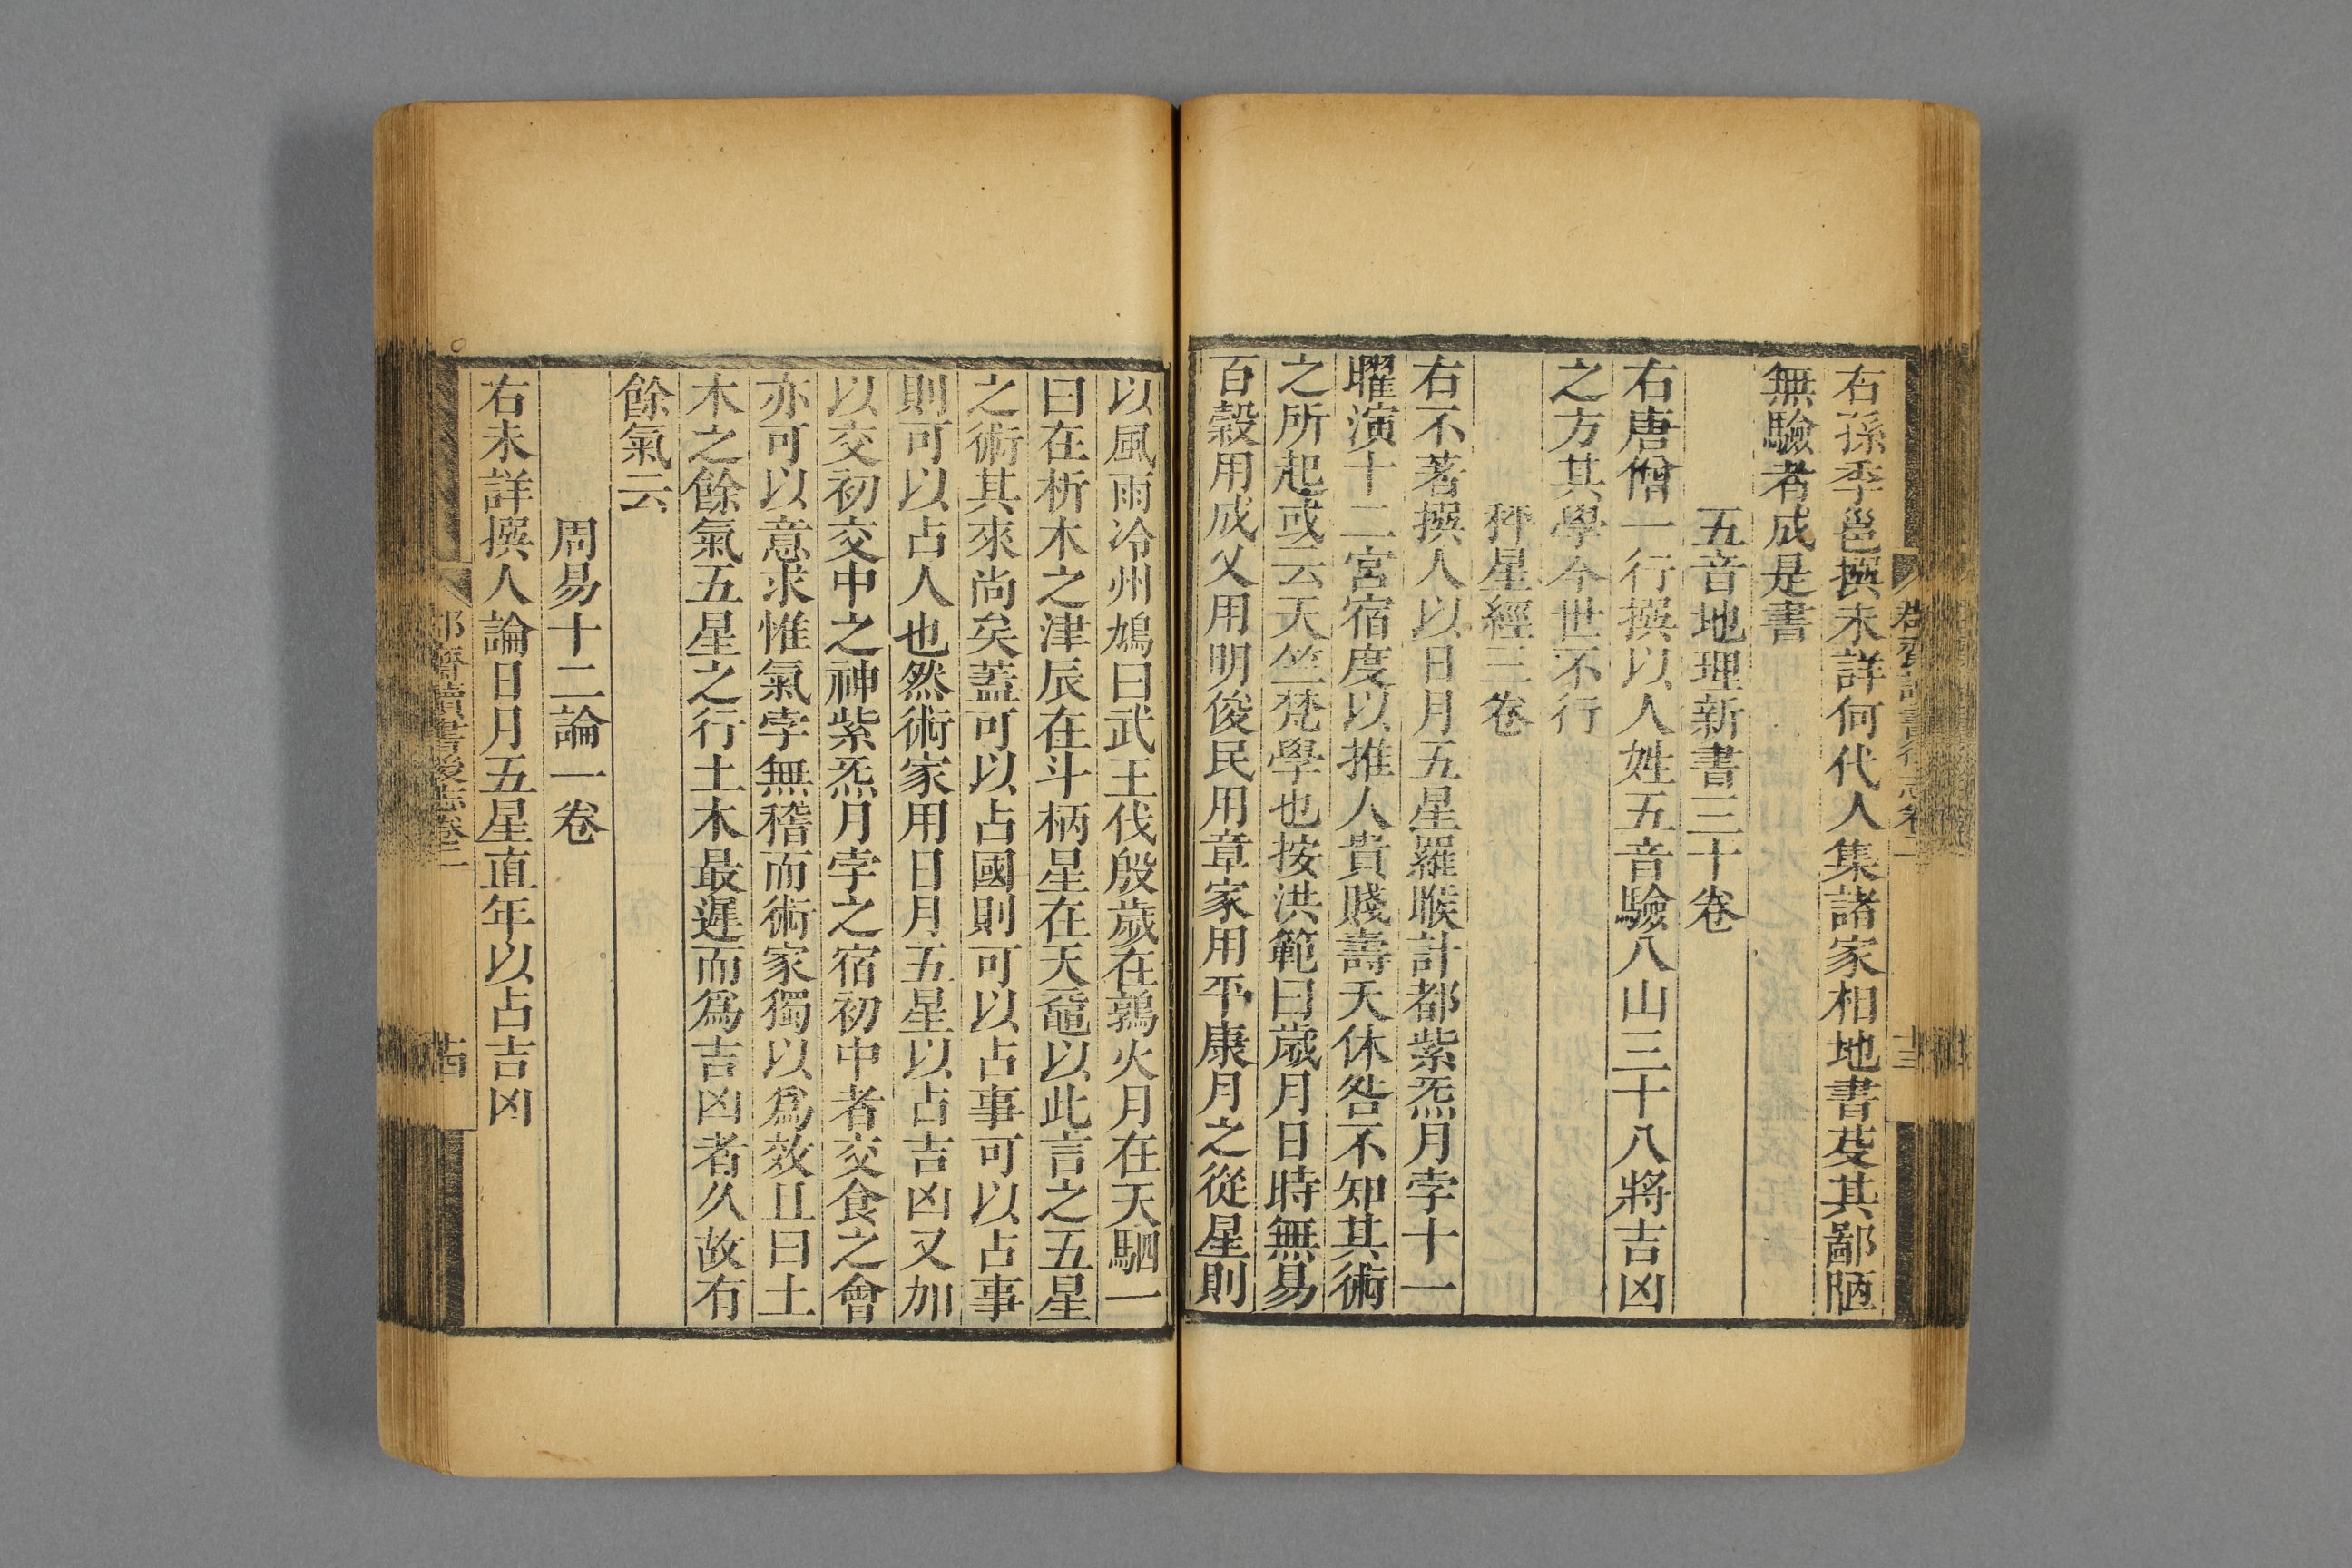 右孫季邕撰未詳何代人集諸家相地書芟其鄙陋
無驗者成是書
五音地理新書三十卷
右唐僧一行撰以人姓五音驗八山三十八將吉凶
之方其學今世不行
秤星經三卷
右不著撰人以日月五星羅睺計都紫炁月孛十一
曜演十二宮宿度以推人貴賤壽夭休咎不知其術
之所起或云天竺梵學也按洪範曰歲月日時無易
百穀用成乂用明俊民用章家用平康月之從星則
以風雨冷州鳩曰武王伐殷歲在鶉火月在天駟一
曰在析木之津辰在斗柄星在天黿以此言之五星
之術其來尚矣蓋可以占國則可以占事可以占事
則可以占人也然術家用日月五星以占吉凶又加
以交初交中之神紫炁月孛之宿初中者交食之會
亦可以意求惟氣孛無稽而術家獨以爲效且曰土
木之餘氣五星之行土木最遲而爲吉凶者久故有
餘氣云
周易十二論一卷
右未詳撰人論日月五星直年以占吉凶